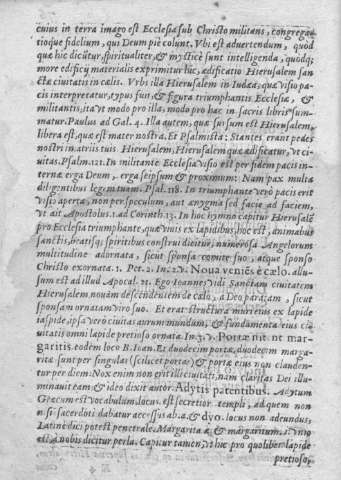 cuius in terra imago est Ecclesia sub Christo militans, congrega-
tioque fidelium, qui Deum piè colunt. Vbi est aduertendum, quod
quæ hic dicūtur, spiritualiter, & mysticè sunt intelligenda, quodq;
more edificij materialis exprimitur hic, ædificatio Hierusalem san
ctæ ciuitatis in cælis. Vrbs illa Hierusalem in Iudæa; quæ visio pa-
cis interpretatur, typus fuit, & figura triumphantis Ecclesiæ, &
militantis, ita vt modo pro illa, modo pro hac in sacris libris sum-
matur. Paulus ad Gal. 4. Illa autem, quæ sursum est Hierusalem,
libera est, quæ est mater nostra. Et Psalmista; Stantes erant pedes
nostri in atrijs tuis Hierusalem, Hierusalem quæ ædificatur, vt ci-
uitas. Psalm. 121. In militante Ecclesia visio est per fidem pacis in-
ternæ erga Deum, erga seipsum & proximum: Nam pax multa
diligentibus legem tuam. Psal. 118. In triumphante verò pacis erit
visio aperta, non per speculum, aut ænygma sed facie ad faciem,
vt ait Apostolus. 1. ad Corinth. 13. In hoc hymno capitur Hierusalē
pro Ecclesia triumphante, quæ viuis ex lapidibus, hoc est, animabus
sanctis, beatisq; spiritibus construi dicitur, numerosa Angelorum
multitudine adornata, sicut sponsa comite suo, atque sponso
Christo exornata. 1. Pet. 2. In. 2. v. Noua veniēs è cælo. allu-
sum est ad illud Apocal. 21. Ego Ioannes vidi Sanctam ciuitatem
Hierusalem nouam descendentem de cælo, a Deo paratam, sicut
sponsam ornatam viro suo. Et erat structura muri eius ex lapide
iaspide, ipsa verò ciuitas aurum mundum, & fundamenta eius ci-
uitatis omni lapide pretioso ornata. In. 3. v. Portæ nitent mar
garitis. eodem loco B. Ioan. Et duodecim portæ, duodecim marga
ritæ sunt per singulas (scilicet portæ) & portæ eius non clauden-
tur per diem: Nox enim non erit illi ciuitati, nam claritas Dei illu-
minauit eam; & ideo dixit autor. Adytis patentibus. Adytum
Græcum est vocabulum, locus. est secretior templi, ad quem non
nisi sacerdoti dabatur accessus ab. α. & δυο. locus non adeundus,
Latinè dici potest penetrale. Margarita æ & margaritum.
est, a nobis dicitur perla. Capitur tamen, vt hic pro quolibet lapide
pretioso,